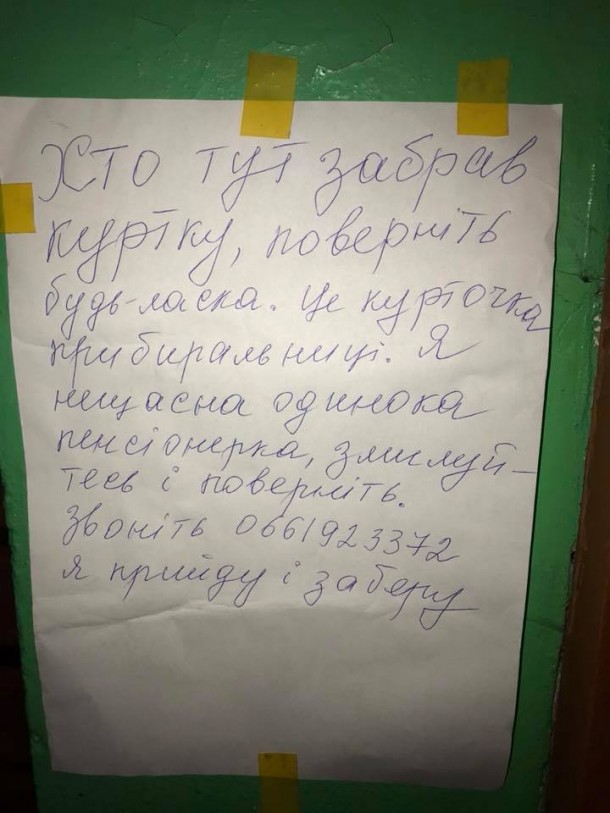 Хто тут забрав
куртку, поверніть
будь-ласка. Це курточка
прибиральниці. Я
нещасна одинока
пенсіонерка, змилуй-
тесь і поверніть.
Звоніть 0661923372
я прийду і заберу